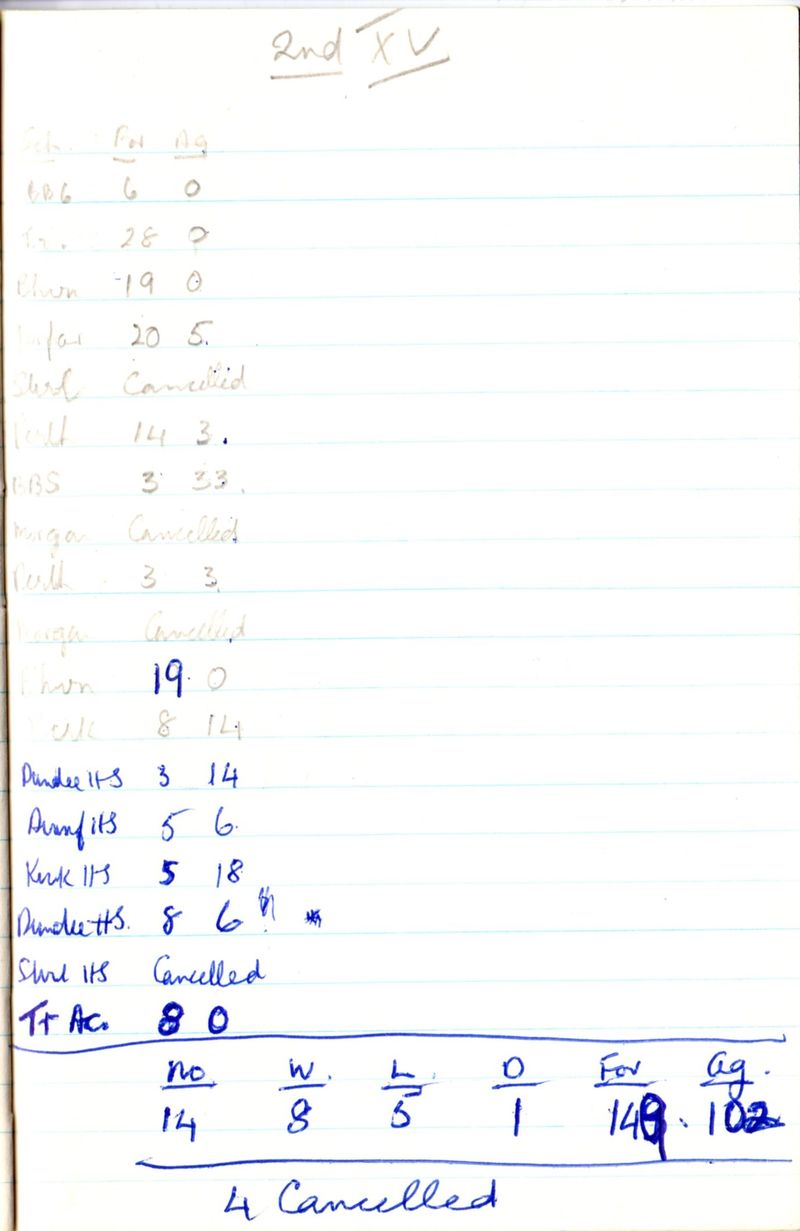 2nd XV
Sch. For Ag
BBG 6 0
Tr. 28 0
19 0
20 5.
Cancelled
Perth 14 3.
BBS 3 33.
Morgan Cancelled
Perth 3 3
Morgan Cancelled
19. 0
Kirk 8 14
Dundee HS 3 14
Dunf HS 5 6
Kirk HS 5 18
Dundee HS. 8 6
HS Cancelled
Tr Ac. 8 0
No W. L. D For Ag.
14 8 5 1 149. 102
4 Cancelled